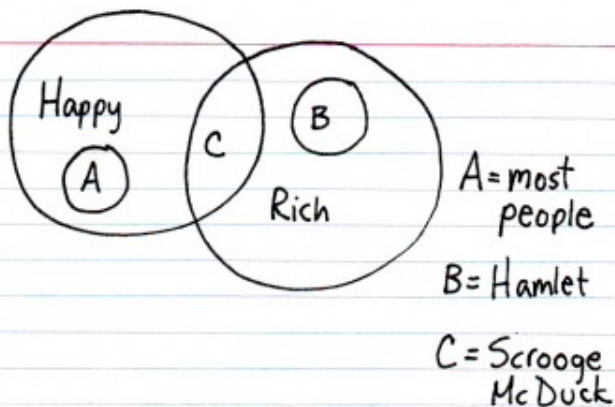 Happy
A
C
B
Rich
A = most
people
B = Hamlet
C = Scrooge
McDuck